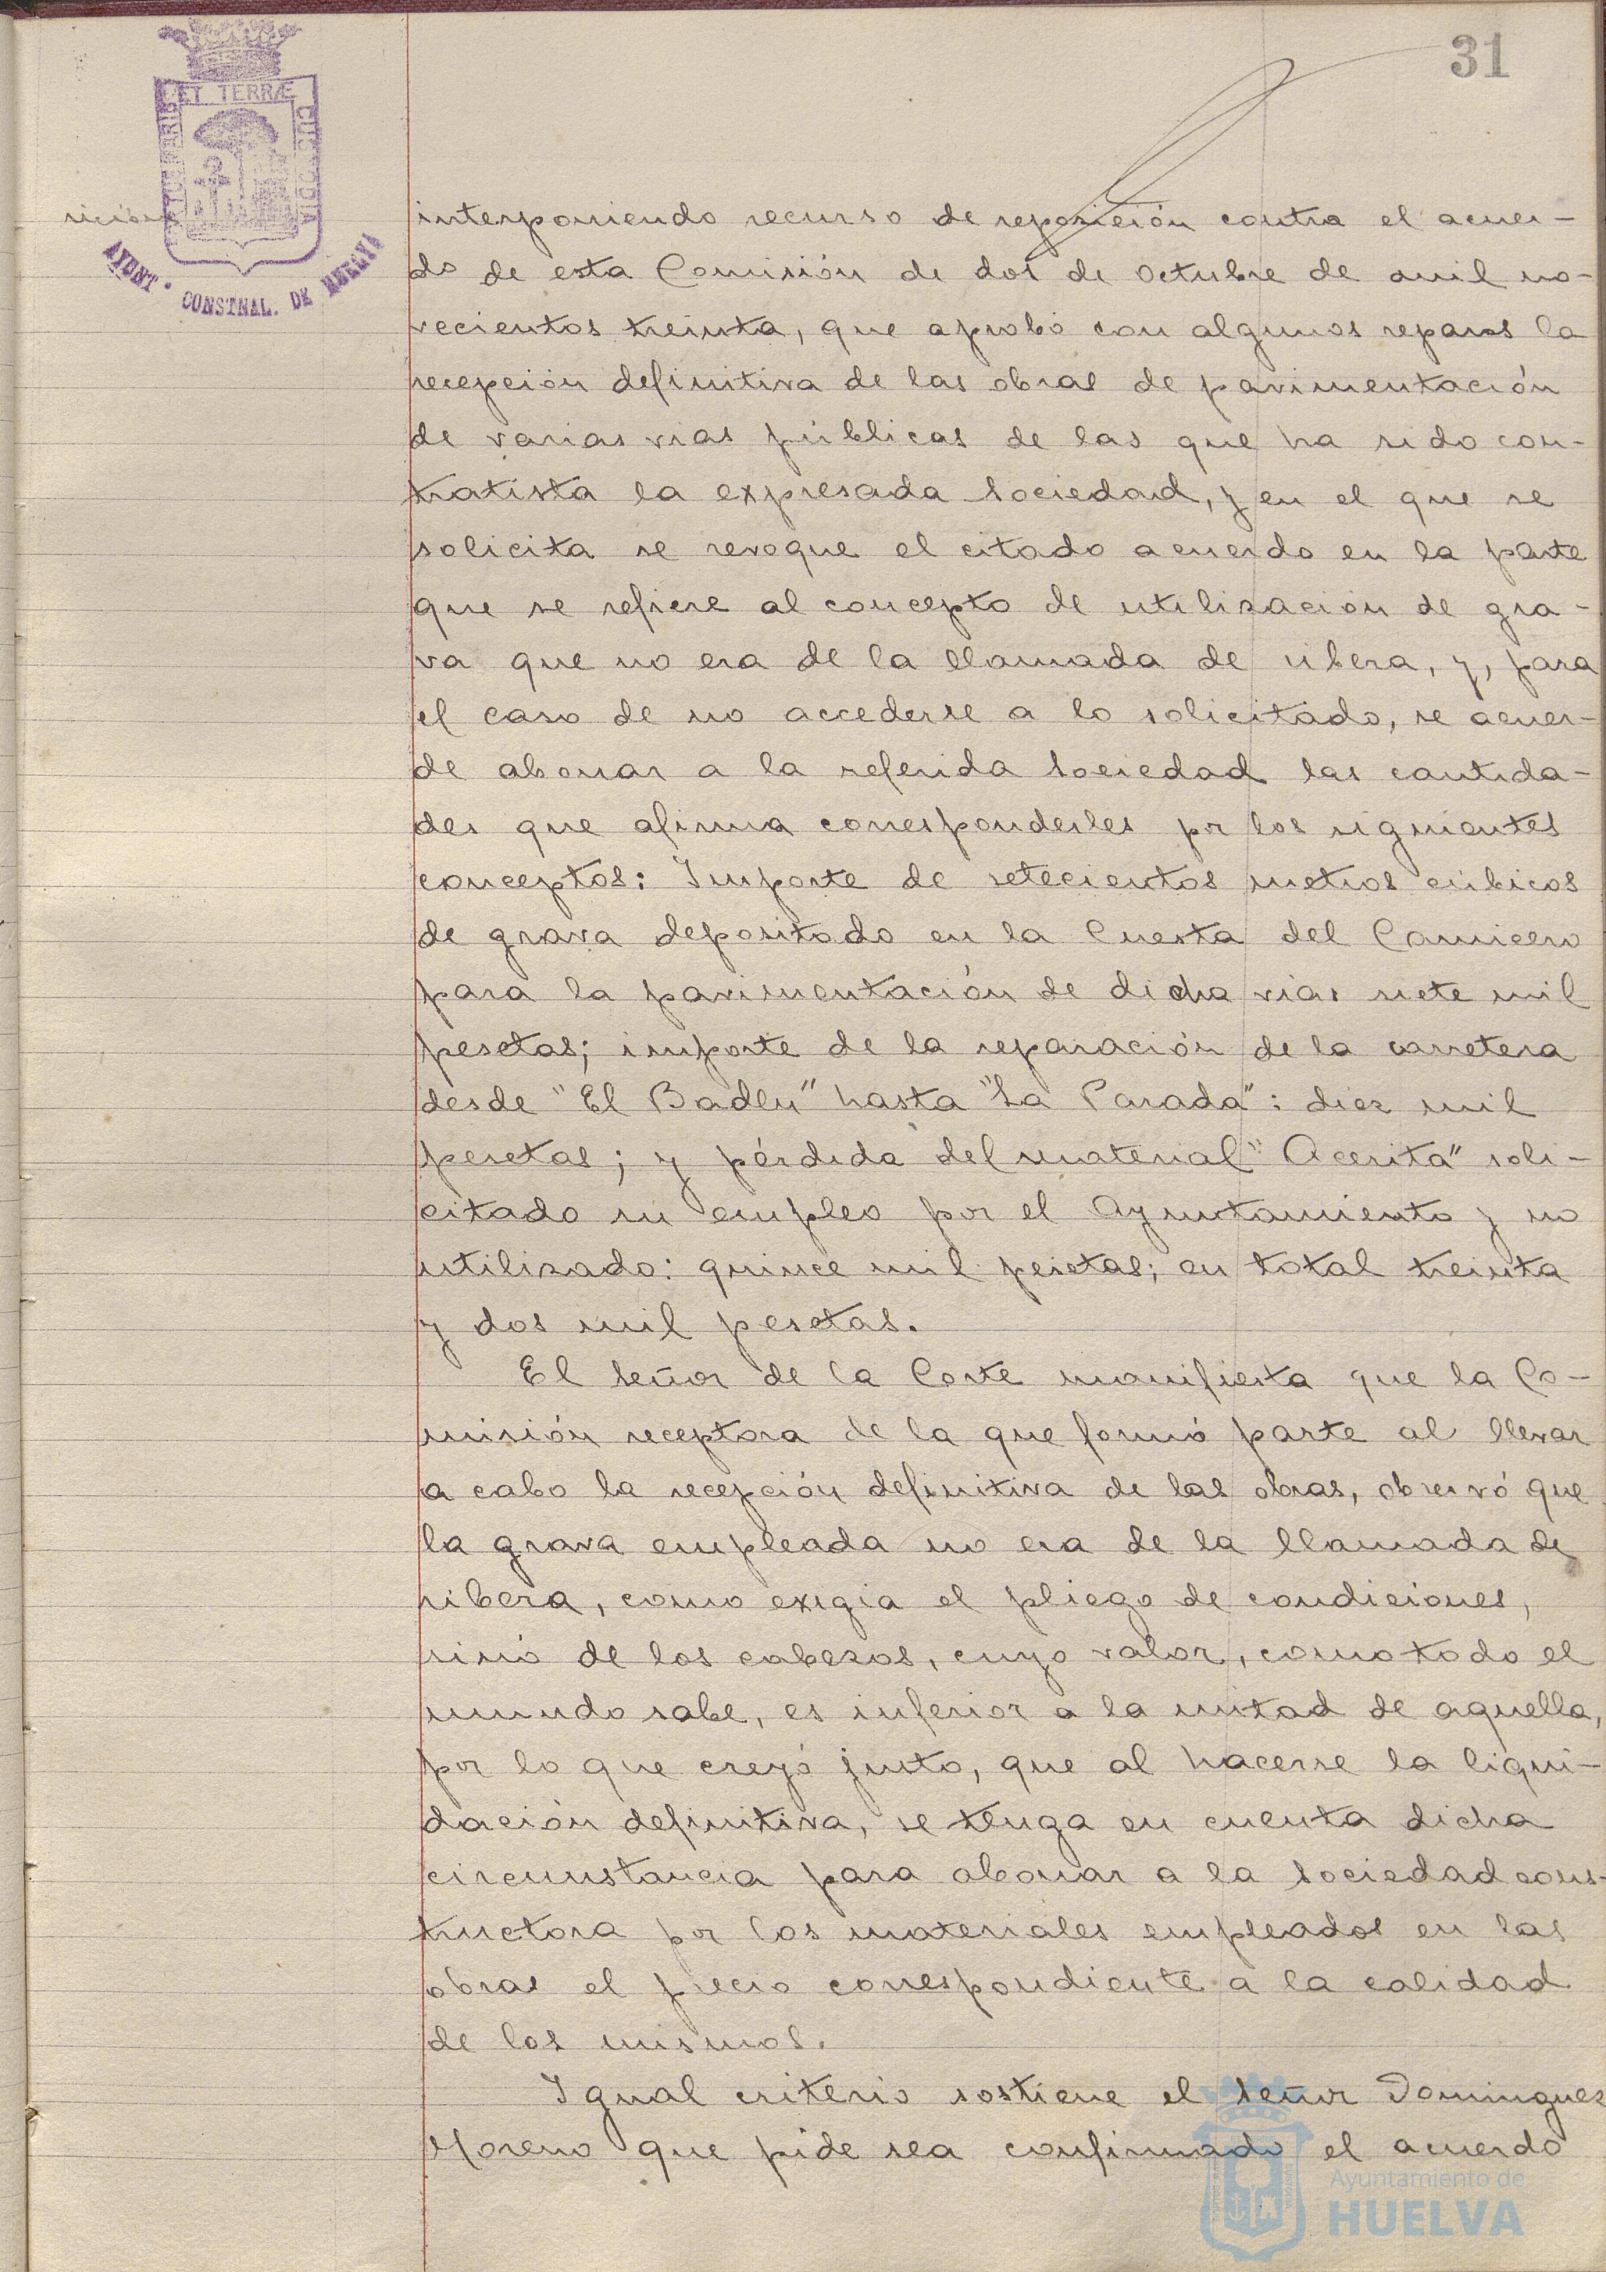 31
ET TERRÆ
PORTUS MARIS
CUSTODIA
AYUNT. CONSTNAL. DE HUELVA
sición
interponiendo recurso de reposición contra el acuer-
do de esta Comisión de dos de Octubre de mil no-
vecientos treinta, que aprobó con algunos reparos la
recepción definitiva de las obras de pavimentación
de varias vias públicas de las que ha sido con-
tratista la expresada Sociedad, y en el que se
solicita se revoque el citado acuerdo en la parte
que se refiere al concepto de utilización de gra-
va que no era de la llamada de ribera, y, para
el caso de no accederse a lo solicitado, se acuer-
de abonar a la referida Sociedad las cantida-
des que afirma corresponderles por los siguientes
conceptos: Importe de setecientos metros cúbicos
de grava depositado en la Cuesta del Carnicero
para la pavimentación de dicha vias siete mil
pesetas; importe de la reparación de la carretera
desde "El Badén" hasta "La Parada": diez mil
pesetas; y pérdida del material "Acerita" soli-
citado su empleo por el Ayuntamiento y no
utilizado: quince mil pesetas; en total treinta
y dos mil pesetas.
El Señor de la Corte manifiesta que la Co-
misión receptora de la que formó parte al llevar
a cabo la recepción definitiva de las obras, observó que
la grava empleada no era de la llamada de
ribera, como exigia el pliego de condiciones,
sinó de los cabezos, cuyo valor, como todo el
mundo sabe, es inferior a la mitad de aquella,
por lo que creyó justo, que al hacerse la liqui-
dación definitiva, se tenga en cuenta dicha
circunstancia para abonar a la Sociedad cons-
tructora por los materiales empleados en las
obras el precio correspondiente a la calidad
de los mismos.
Igual criterio sostiene el Señor Dominguez
Moreno que pide sea confirmado el acuerdo
Ayuntamiento de
HUELVA